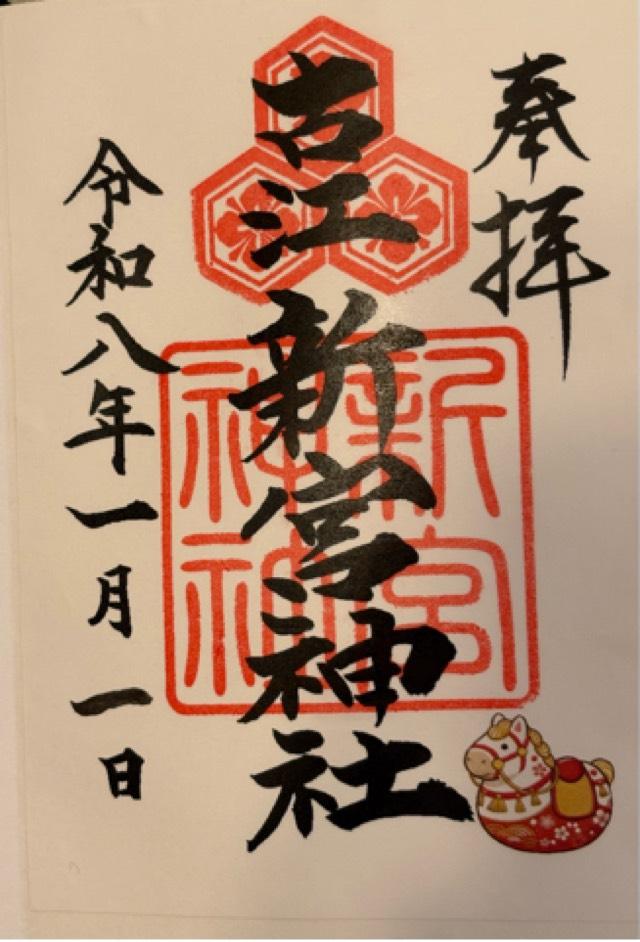 奉拝
古江新宮神社
令和八年一月一日
新宮
神社